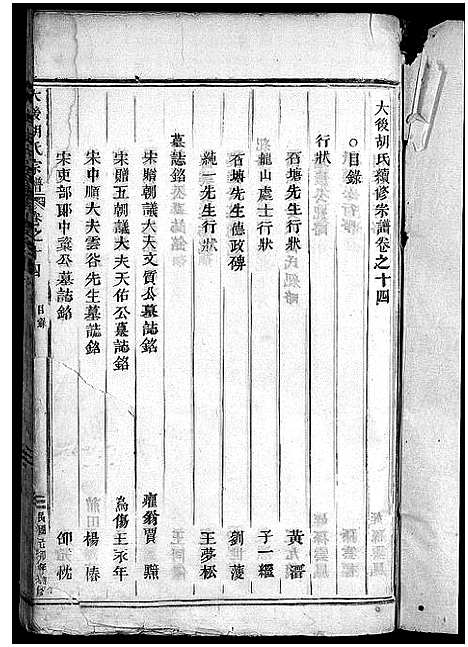 大後胡氏續修宗譜卷之十四
○目錄
行狀
石塘先生行狀 黃溍
龍山處士行狀 子一經
石塘先生德政碑 劉世
純一先生行狀 王夢松
墓誌銘
宋贈朝議大夫文質公墓誌銘 賈
宋贈五朝議大夫天佑公墓誌銘 為傷王永年
宋中順大夫雲谷先生墓誌銘 莆田楊椿
宋吏部郎中公墓誌銘
大後胡氏宗譜 卷之十四 目錄 民國元